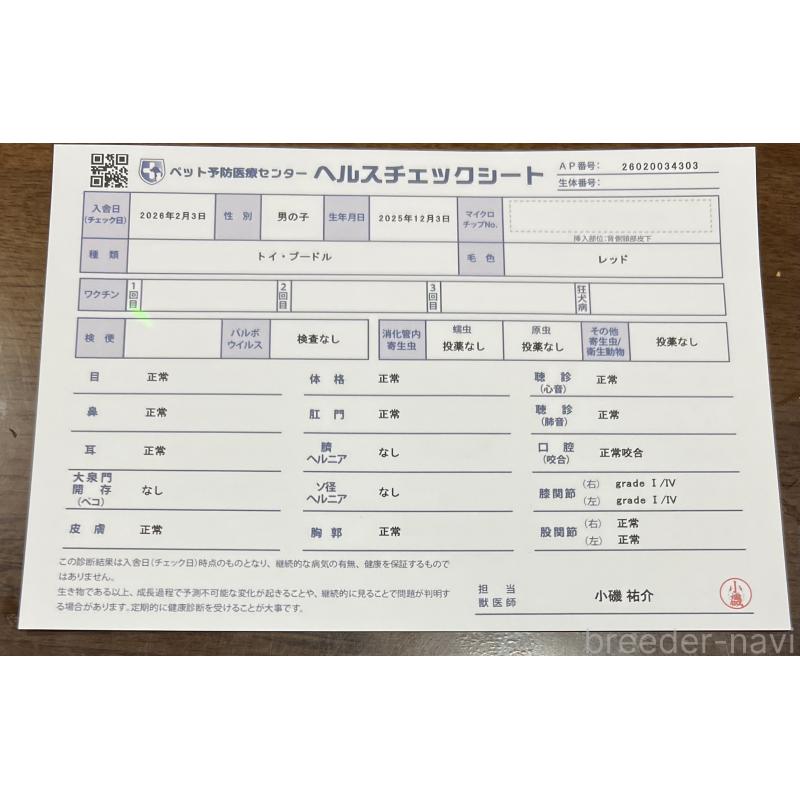 ペット予防医療センター ヘルスチェックシート
AP番号: 26020034303
生体番号:
入舎日(チェック日) 2026年2月3日 性別 男の子 生年月日 2025年12月3日 マイクロチップNo.
挿入部位:背側頸部皮下
種類 トイ・プードル 毛色 レッド
ワクチン 1回目 2回目 3回目 狂犬病
検便 パルボウイルス 検査なし 消化管内寄生虫 蠕虫 投薬なし 原虫 投薬なし その他寄生虫/衛生動物 投薬なし
目 正常 体格 正常 聴診(心音) 正常
鼻 正常 肛門 正常 聴診(肺音) 正常
耳 正常 臍ヘルニア なし 口腔(咬合) 正常咬合
大泉門開存(ペコ) なし ソ径ヘルニア なし 膝関節 (右) grade Ⅰ/Ⅳ
(左) grade Ⅰ/Ⅳ
皮膚 正常 胸郭 正常 股関節 (右) 正常
(左) 正常
この診断結果は入舎日(チェック日)時点のものとなり、継続的な病気の有無、健康を保証するもので
はありません。
生き物である以上、成長過程で予測不可能な変化が起きることや、継続的に見ることで問題が判明す
る場合があります。定期的に健康診断を受けることが大事です。
担当獣医師 小磯 祐介
小磯
breeder-navi